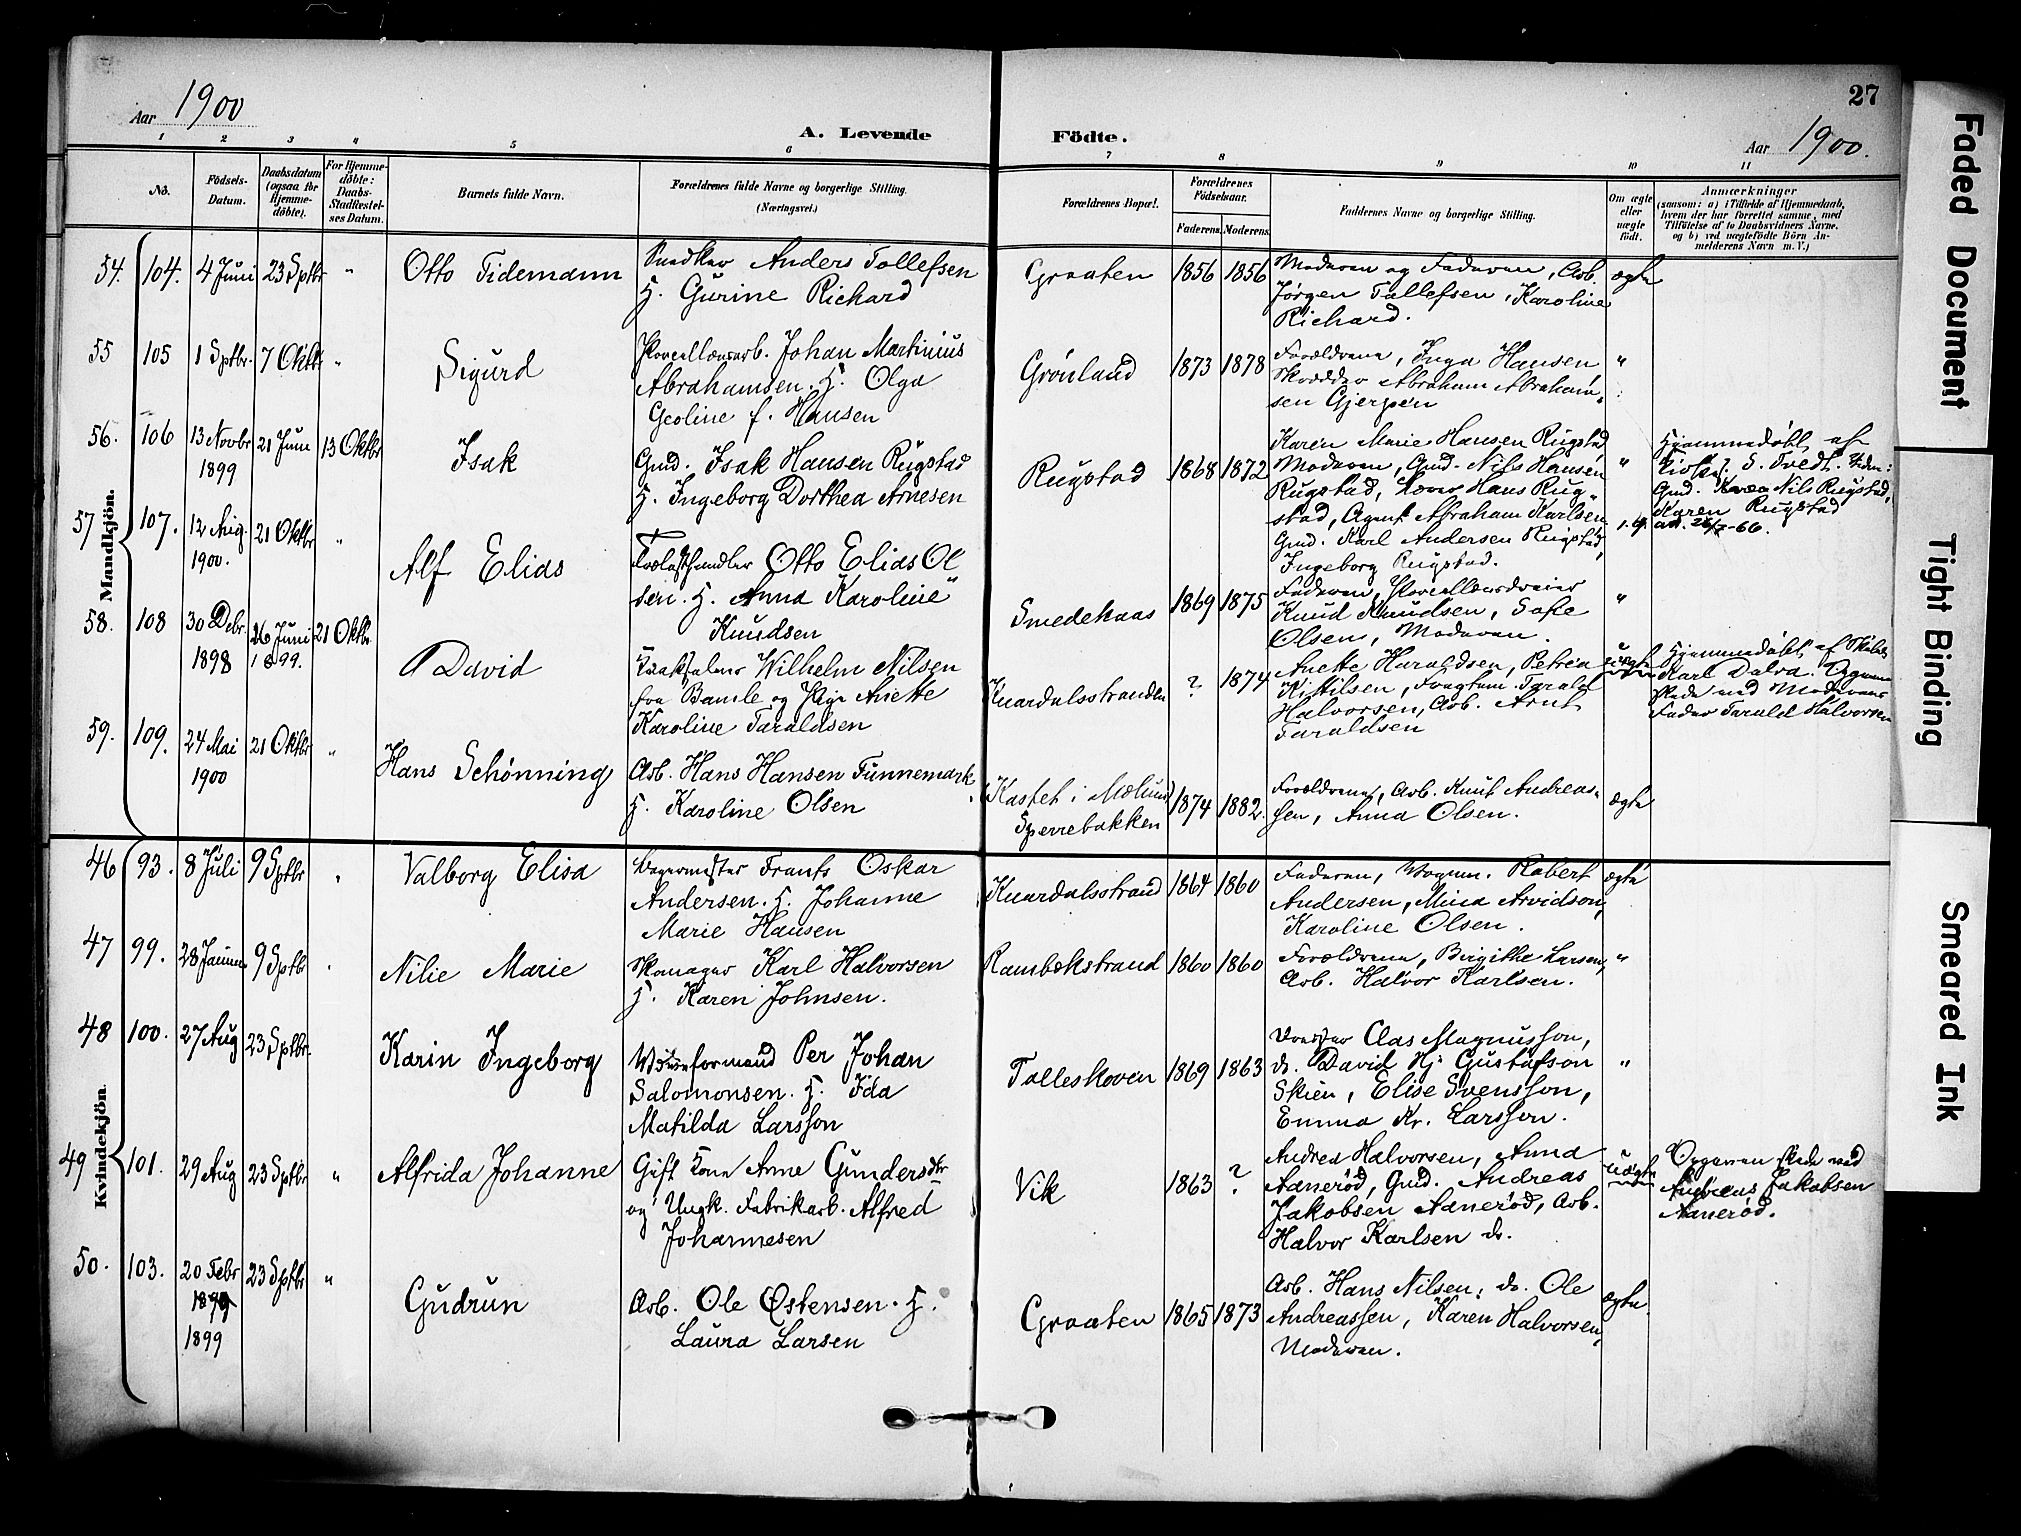 Aar 1900
A. Levende Födte.
27
Aar 1900.
1 2 3 4 5 6 7 8 9 10 11
No.
Födsels-Datum.
Daabsdatum (ogsaa for Hjemme-döbte).
For Hjemme-döbte: Daabs-Stadfæstel-ses Datum.
Barnets fulde Navn.
Forældrenes fulde Navne og borgerlige Stilling. (Næringsvei.)
Forældrenes Bopæl.
Forældrenes Födselsaar.
Faderens. Moderens.
Faddernes Navne og borgerlige Stilling.
Om ægte eller uægte födt.
Anmærkninger
(saasom: a) i Tilfælde af Hjemmedaab, hvem der har forrettet samme, med Tilföielse af to Daabsvidners Navne, og b) ved uægtefödte Börn An-melderens Navn m. V.)
Mandkjön.
54. 104. 4 Juni 23 Sptbr " Otto Tidemann
Snedker Anders Tollefsen
H. Gurine Richard
Graaten 1856 1856
Moderen og Faderen, Arb.
Jørgen Tollefsen, Karoline
Richard.
ægte
55 105 1 Sptbr. 7 Oktbr " Sigurd
Porcellænsarb. Johan Martinius
Abrahamsen. H. Olga
Geoline f. Hansen
Grønland 1873 1878
Forældrene, Inga Hansen
Skrædder Abraham Abraham-
sen Gjerpen
"
56. 106 13 Novbr 1899 21 Juni 13 Oktbr Isak
Gmd. Isak Hansen Rugstad
H. Ingeborg Dorthea Arnesen
Rugstad 1868 1872
Karen Marie Hansen Rugstad
Moderen, Gmd. Nils Hansen
Rugstad, Hans Rug-
stad, Agent Abraham Karlsen
Gmd. Karl Andersen Rugstad,
Ingeborg Rugstad.
"
Hjemmedøbt af
S. Tvedt.
Gmd. Nils Rugstad,
Karen Rugstad
57 107. 12 Aug. 1900. 21 Oktbr " Alf Elias
Trælasthandler Otto Elias Ol
sen. H. Anna Karoline
Knudsen
Smedekaas 1869 1875
Faderen, Porcellænsdreier
Knud Knudsen, Sofie
Olsen, Moderen.
"
58. 108 30 Debr. 1898 26 Juni 1899. 21 Oktbr David
Wilhelm Nilsen
fra Bamle og Pige Anette
Karoline Taraldsen
Knardalsstranden ? 1874
Anette Haraldsen, Petrea
Kittilsen, Tarald
Halvorsen, Arb. Arnt
Taraldsen
uægte
Hjemmedøbt af
Karl Dalva. Opgaven
skede ved Moderens
Fader Tarald Halvorsen
59. 109. 24 Mai 1900 21 Oktbr " Hans Schønning
Arb. Hans Hansen Tunnemark
H. Karoline Olsen
Kastet i Mælum
Sperrebakken
1874 1882.
Forældrene, Arb. Knut Andreas-
sen, Anna Olsen.
ægte
Kvindekjön.
46 93. 8 Juli 9 Sptbr " Valborg Elisa
Bagermester Frants Oskar
Andersen. H. Johanne
Marie Hansen
Knardalsstrand 1864 1860
Faderen, Robert
Andersen, Mina Arvidson,
Karoline Olsen.
ægte
47 99. 28 9 Sptbr " Nilie Marie
Skomager Karl Halvorsen
H. Karen Johnsen.
Rambekstrand 1860 1860
Forældrene, Birgitte Larsen,
Arb. Halvor Karlsen.
"
48 100. 27 Aug 23 Sptbr. Karin Ingeborg
Per Johan
Salomonsen. H. Ida
Matilda Larsson
Tolleskoven 1869 1863
Clas Magnusson,
do. David Hj. Gustafson
Skien, Elise Svensson,
Emma Kr. Larsson.
"
49 101. 29 Aug 23 Sptbr " Alfrida Johanne
Gift Kone Anne Gundersdtr
og Ungk. Fabrikarb. Alfred
Johannesen
Vik 1863 ?
Andrea Halvorsen, Anna
Aanerød, Gmd. Andreas
Jakobsen Aanerød, Arb.
Halvor Karlsen do.
uægte
Opgaven skede ved
Andreas Jakobsen
Aanerød.
50. 103. 20 Febr 1899 23 Sptbr " Gudrun
Arb. Ole Østensen. H.
Laura Larsen
Graaten 1865 1873
Arb. Hans Nilsen, do. Ole
Andreassen, Karen Halvorsen,
Moderen.
ægte
Faded Document
Tight Binding
Smeared Ink